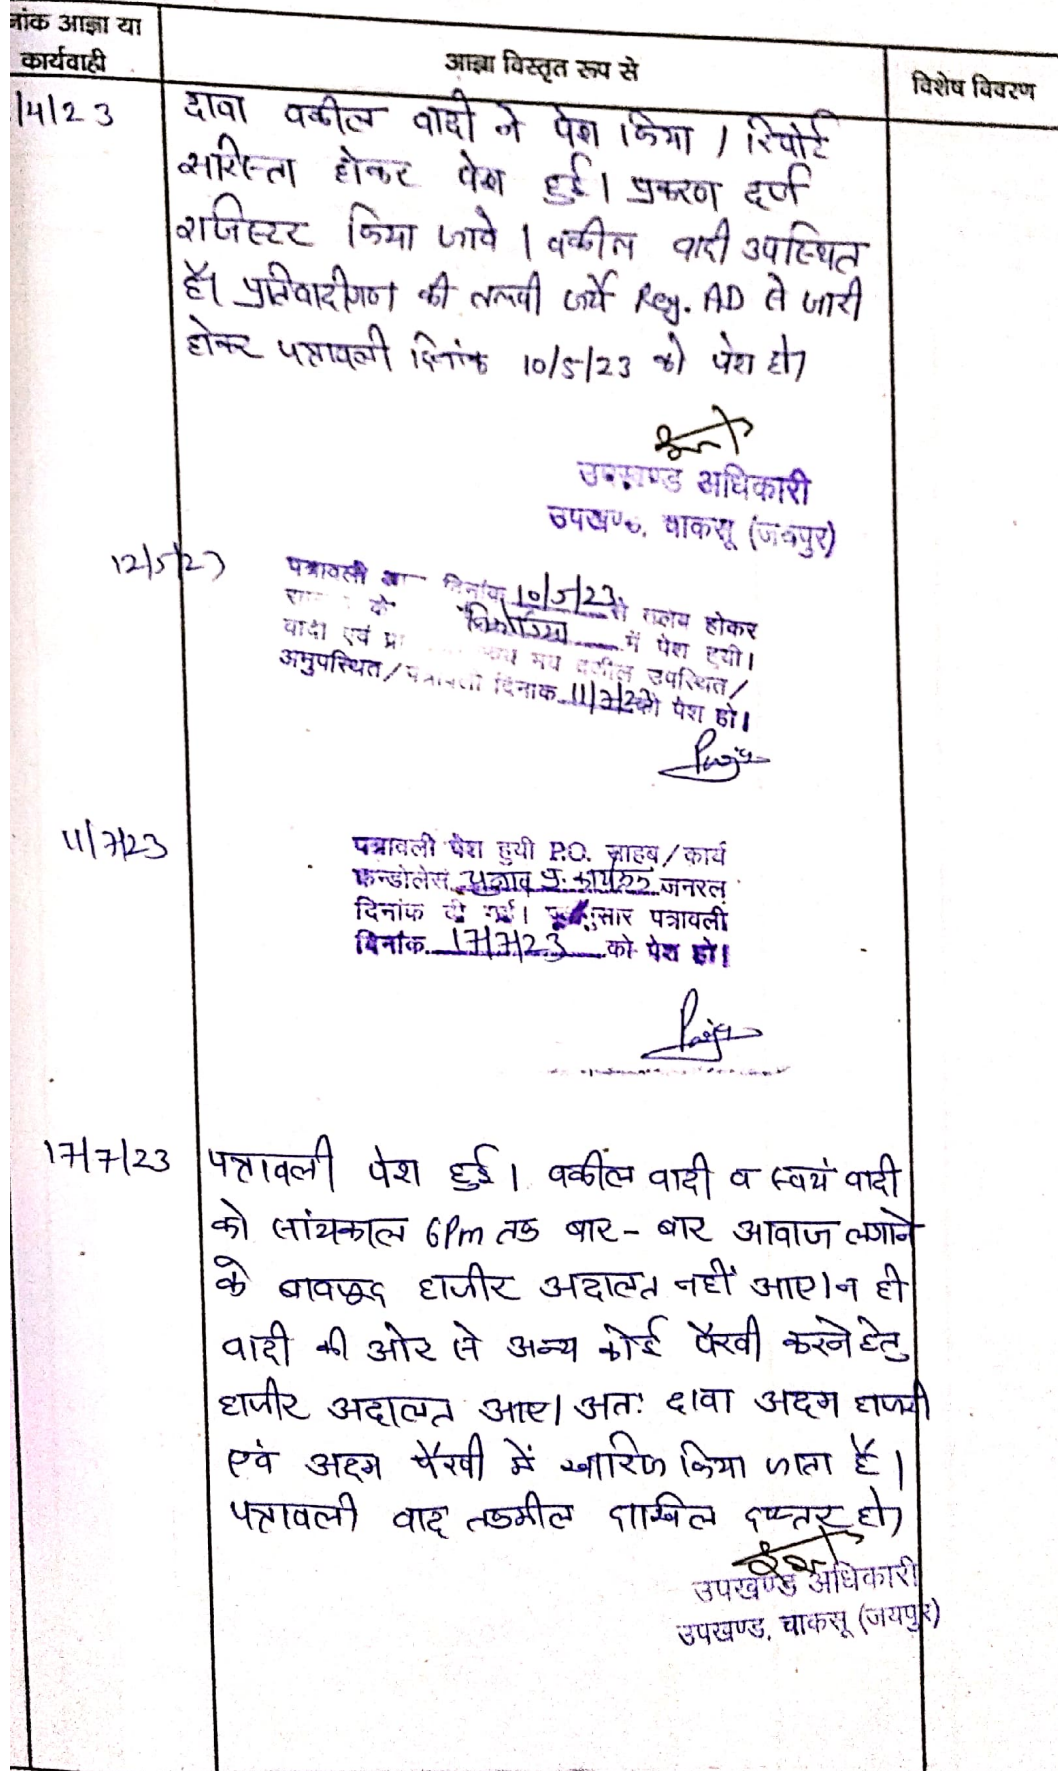 नांक आज्ञा या
कार्यवाही
आज्ञा विस्तृत रूप से
विशेष विवरण
/4/23
दावा वकील वादी ने पेश किया । रिपोर्ट
सरिस्ता होकर पेश हुई। प्रकरण दर्ज
राजिस्टर किया जावे । वकील वादी उपस्थित
है। प्रतिवादीगण की तलबी जर्ये Reg. AD से जारी
होकर पत्रावली दिनांक 10/5/23 को पेश हो।
उपखण्ड अधिकारी
उपखण्ड, चाकसू (जयपुर)
12/5/23
पत्रावली दिनांक 10/5/23 से तलब होकर
के में पेश हुयी।
वादी एवं मय वकील उपस्थित/
अनुपस्थित/पत्रावली दिनांक 11/7/23 को पेश हो।
11/7/23
पत्रावली पेश हुयी P.O. साहब/कार्य
कन्डोलेस चुनाव जनरल
दिनांक दी गई। सार पत्रावली
दिनांक 17/7/23 को पेश हो।
17/7/23
पत्रावली पेश हुई । वकील वादी व स्वयं वादी
को सांयकाल 6Pm तक बार-बार आवाज लगाने
के बावजूद हाजीर अदालत नहीं आए। न ही
वादी की ओर से अन्य कोई पैरवी करने हेतु
हाजीर अदालत आए। अतः दावा अदम हाजरी
एवं अदम पैरवी में खारिज किया जाता है ।
पत्रावली बाद तकमील दाखिल दफ्तर हो।
उपखण्ड अधिकारी
उपखण्ड, चाकसू (जयपुर)